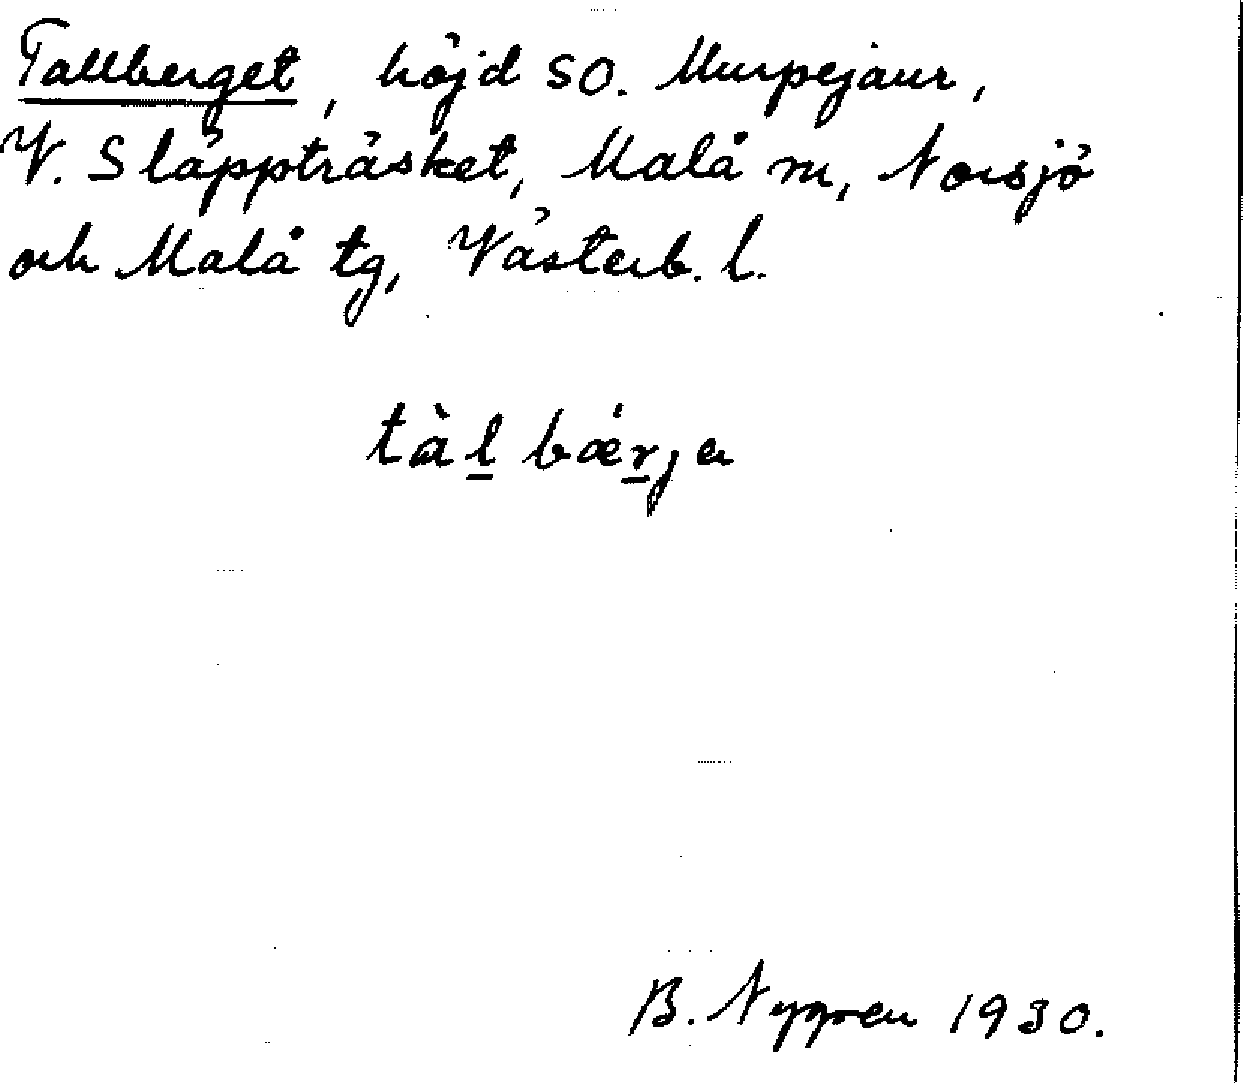 Tallberget, höjd SO. Murpejaur,
V. Släppträsket, Malå sn, Norsjö
och Malå tg, Västerb. l.
tàl bǽrja
B. Nygren 1930.